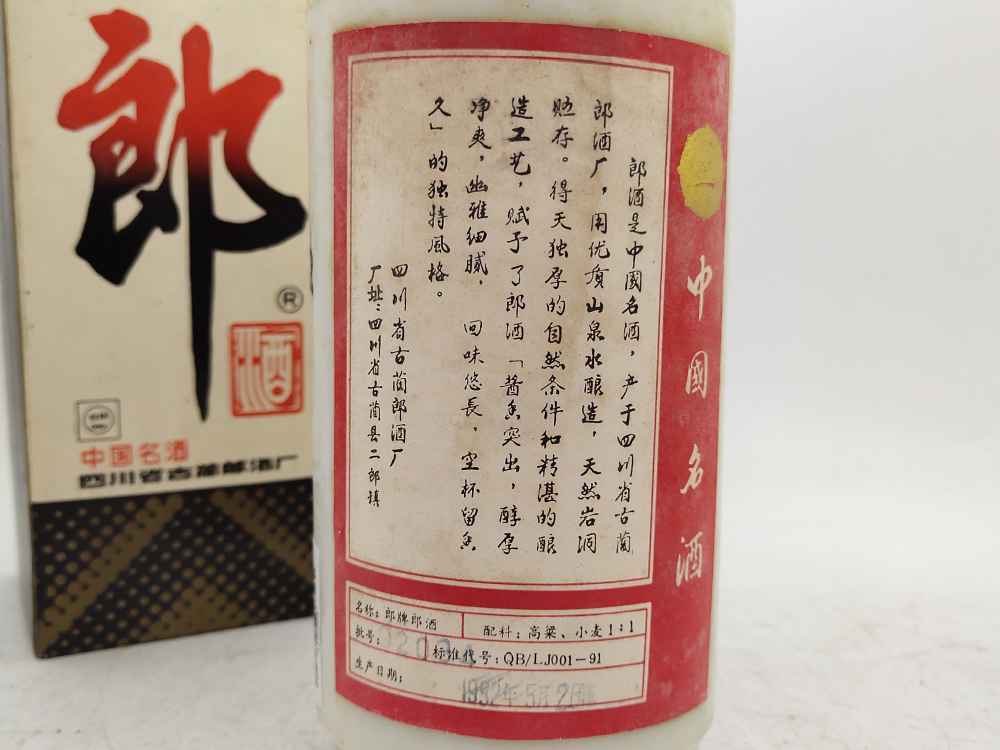 郎
®
酒
中国名酒
四川省古蔺郎酒厂
郎酒是中國名酒，产于四川省古蔺
郎酒厂，用优质山泉水酿造，天然岩洞
贮存。得天独厚的自然条件和精湛的酿
造工艺，赋予了郎酒「酱香突出，醇厚
净爽，幽雅细腻，回味悠長，空杯留香
久」的独特風格。
四川省古蔺郎酒厂
厂址：四川省古蔺县二郎镇
中國名酒
名称：郎牌郎酒
配料：高粱、小麦1:1
批号：
标准代号：QB/LJ001-91
生产日期：
1992年5月2日